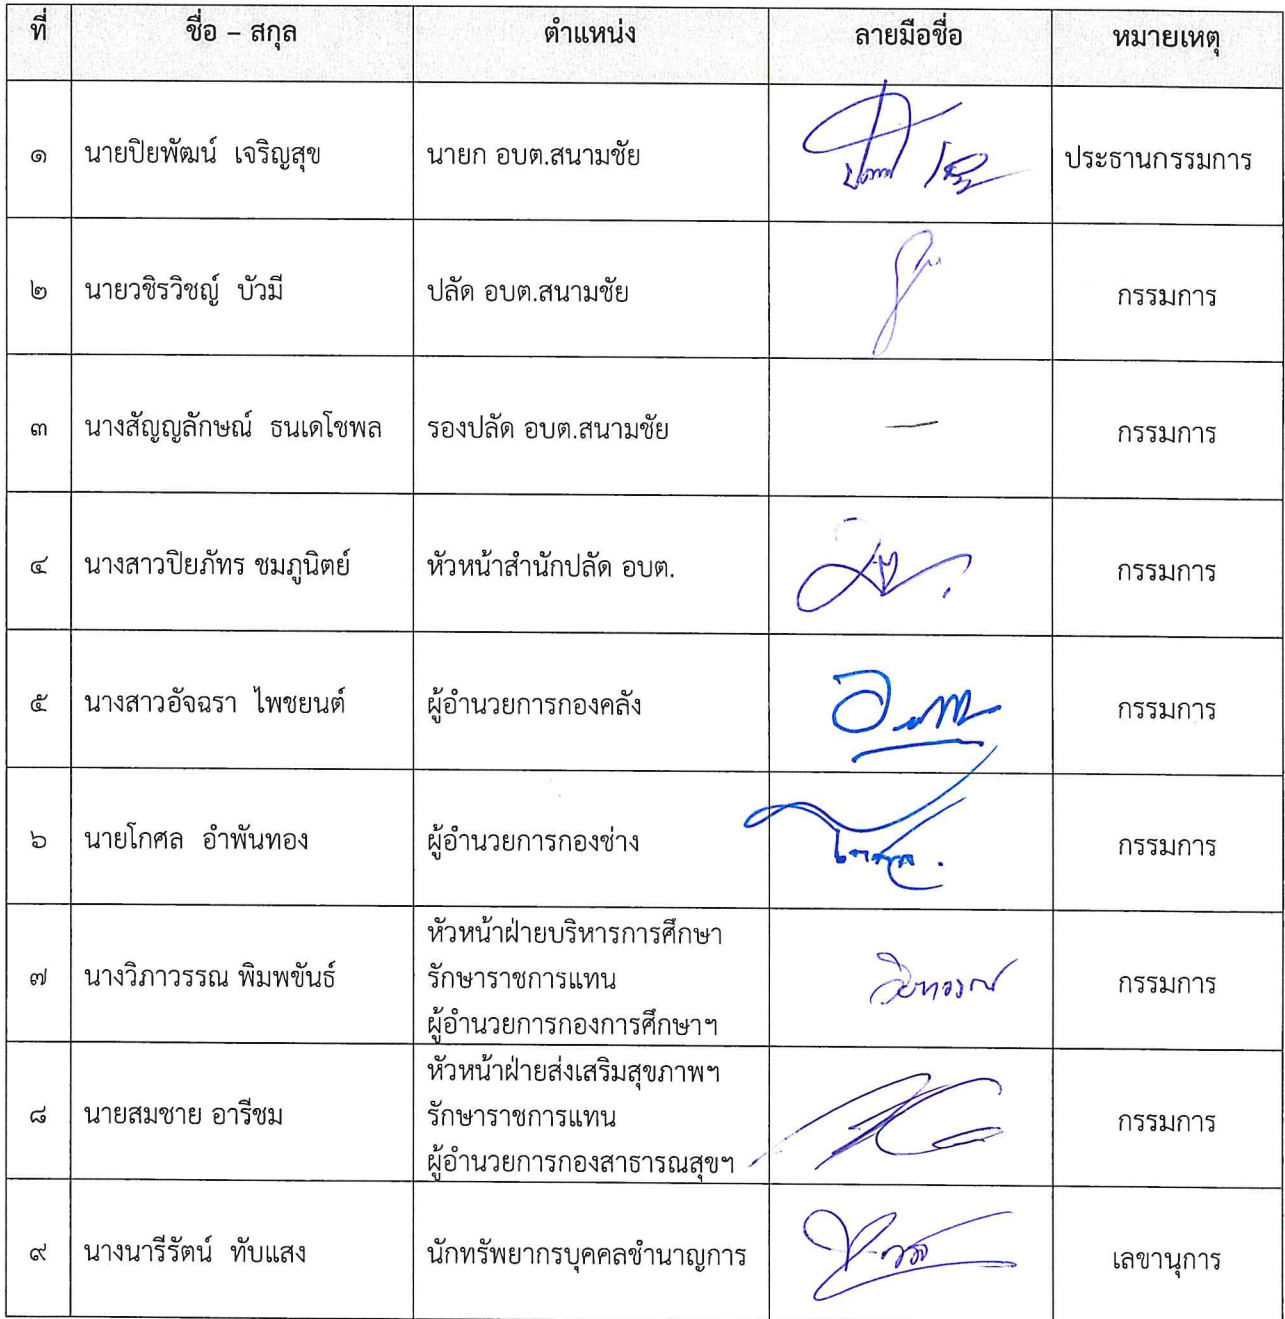 ที่ ชื่อ – สกุล ตำแหน่ง ลายมือชื่อ หมายเหตุ
๑ นายปิยพัฒน์ เจริญสุข นายก อบต.สนามชัย ประธานกรรมการ
๒ นายวชิรวิชญ์ บัวมี ปลัด อบต.สนามชัย กรรมการ
๓ นางสัญญลักษณ์ ธนเดโชพล รองปลัด อบต.สนามชัย – กรรมการ
๔ นางสาวปิยภัทร ชมภูนิตย์ หัวหน้าสำนักปลัด อบต. กรรมการ
๕ นางสาวอัจฉรา ไพชยนต์ ผู้อำนวยการกองคลัง กรรมการ
๖ นายโกศล อำพันทอง ผู้อำนวยการกองช่าง โกศล กรรมการ
หัวหน้าฝ่ายบริหารการศึกษา
๗ นางวิภาวรรณ พิมพขันธ์ รักษาราชการแทน วิภาวรรณ กรรมการ
ผู้อำนวยการกองการศึกษาฯ
หัวหน้าฝ่ายส่งเสริมสุขภาพฯ
๘ นายสมชาย อารีชม รักษาราชการแทน กรรมการ
ผู้อำนวยการกองสาธารณสุขฯ
๙ นางนารีรัตน์ ทับแสง นักทรัพยากรบุคคลชำนาญการ เลขานุการ